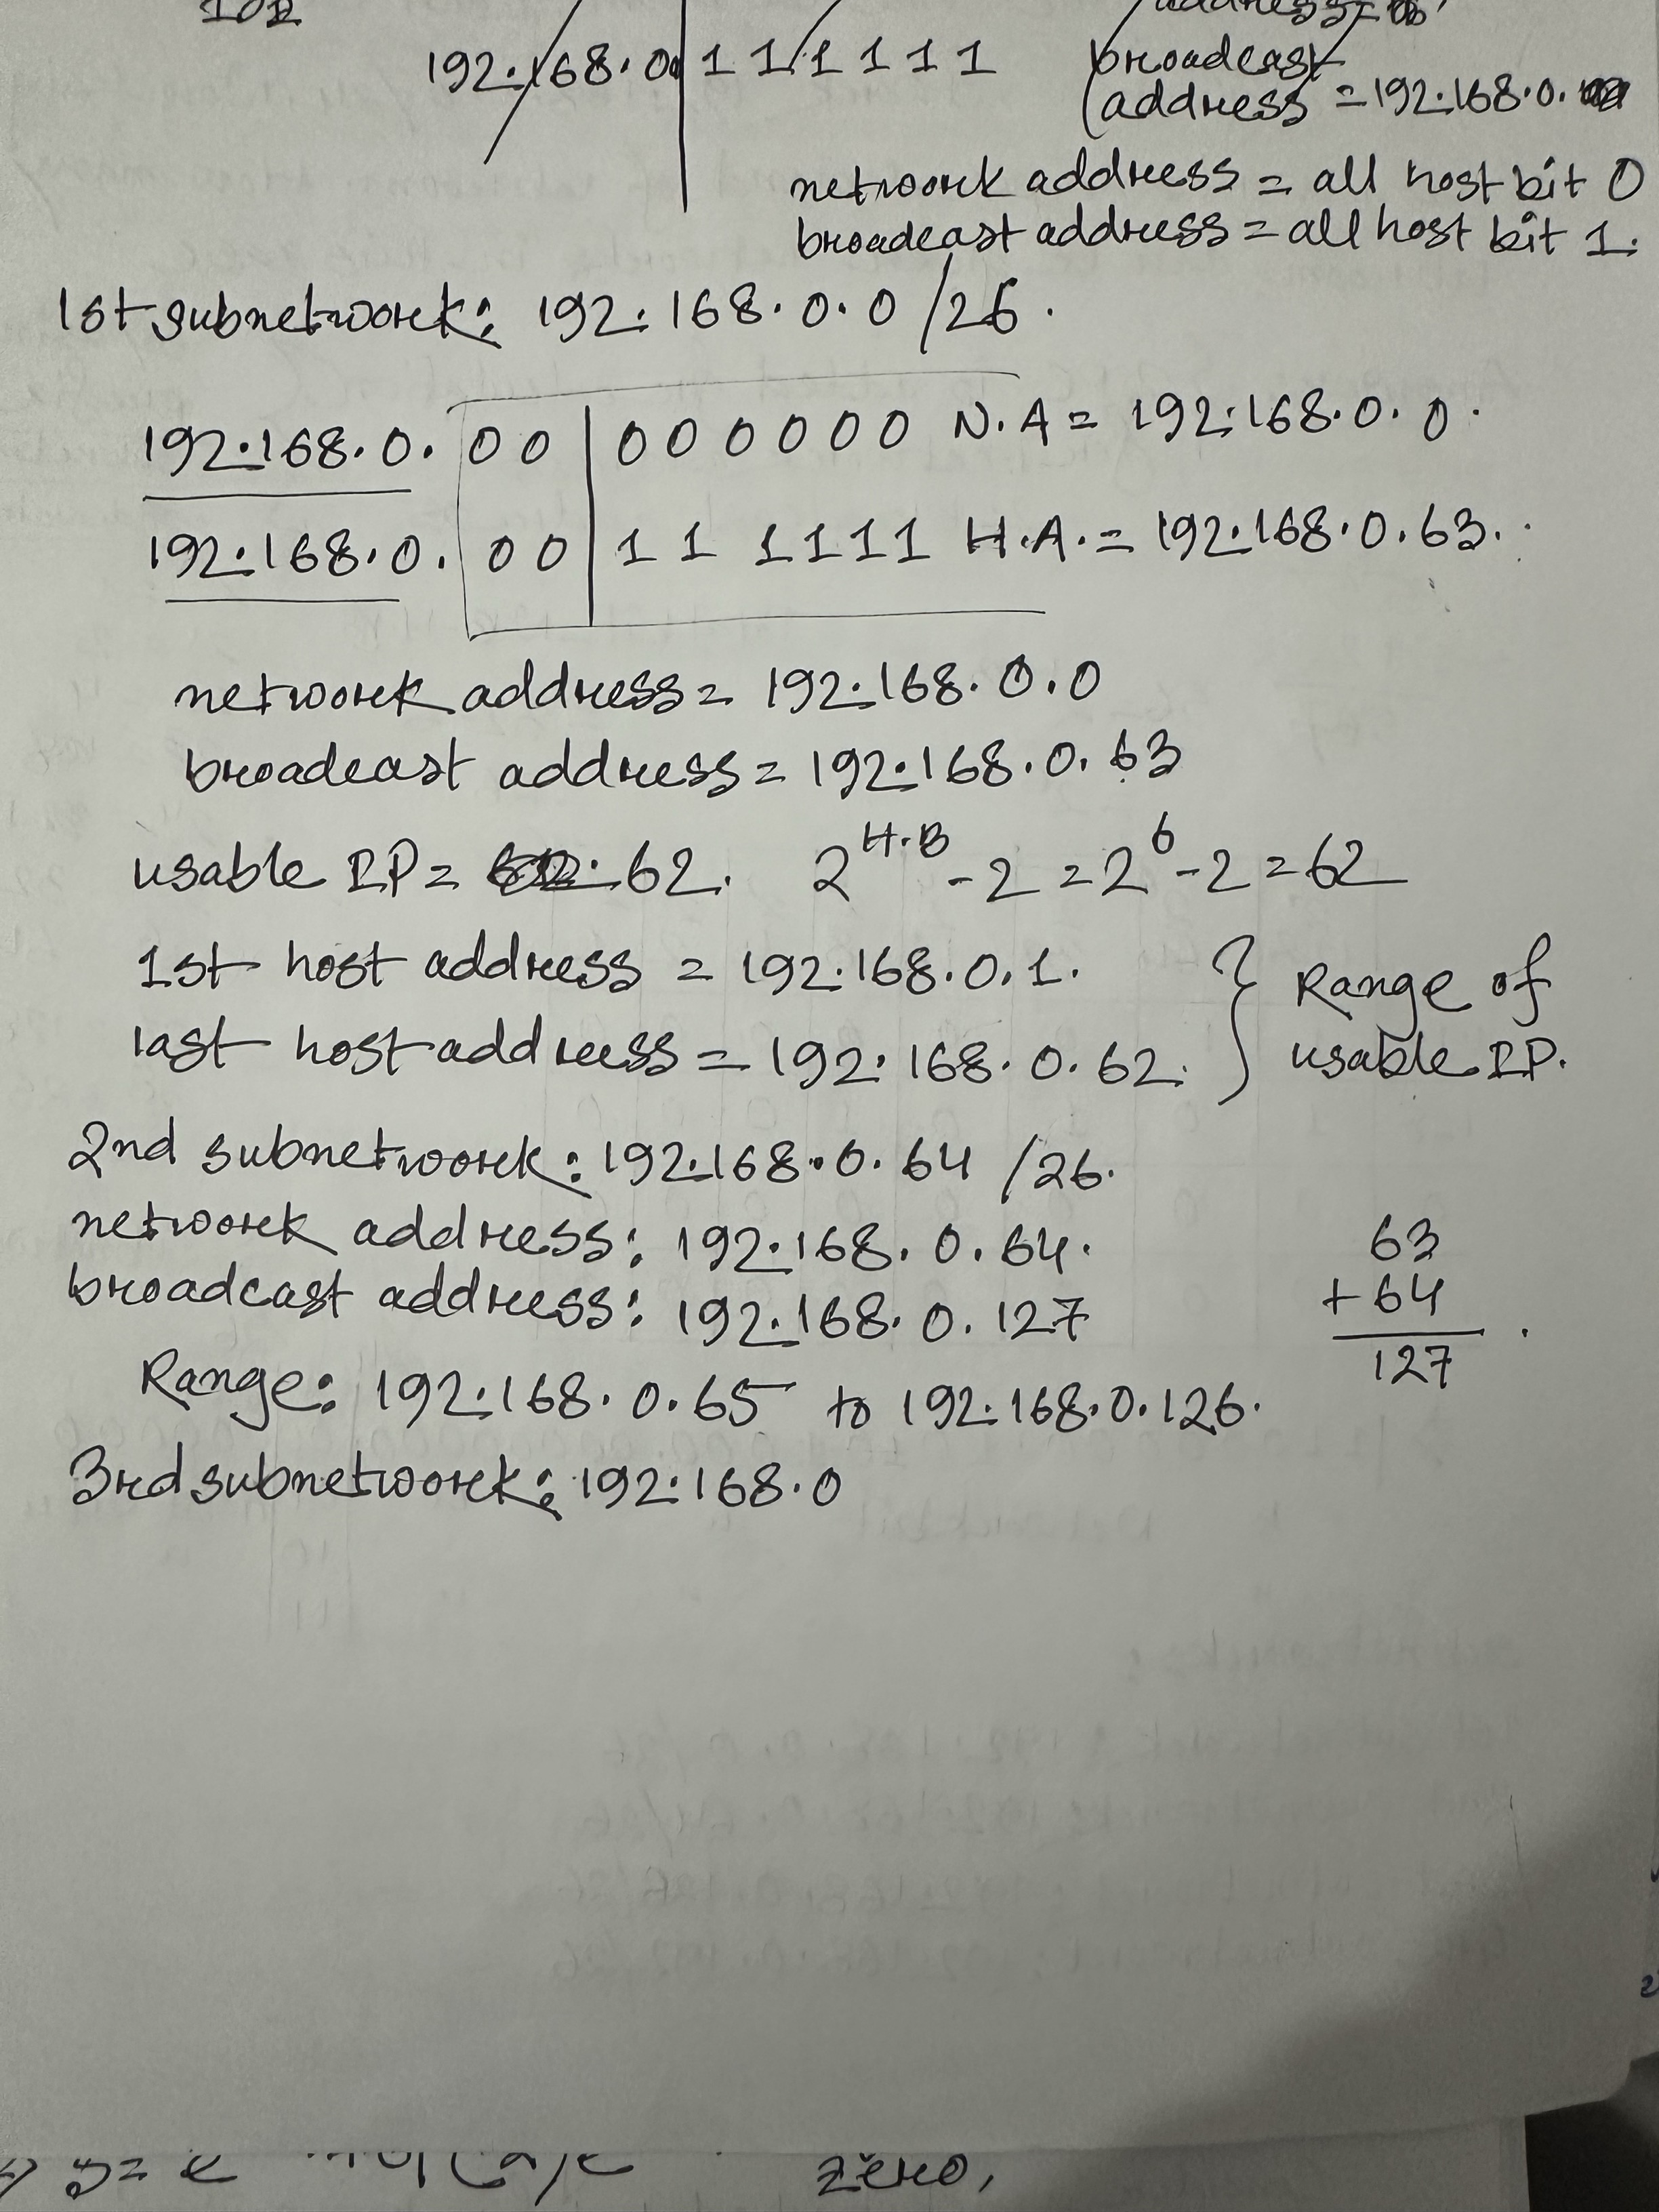 192.168.0. 1 1 1 1 1 1 1
broadcast
address = 192.168.0.
network address = all host bit 0
broadcast address = all host bit 1.
1st subnetwork: 192.168.0.0 /26.
192.168.0. 0 0 | 0 0 0 0 0 0 N.A = 192.168.0.0.
192.168.0. 0 0 | 1 1 1 1 1 1 H.A. = 192.168.0.63.
network address = 192.168.0.0
broadcast address = 192.168.0.63
usable IP = 62. 2^H.B - 2 = 2^6 - 2 = 62
1st host address = 192.168.0.1.
last host address = 192.168.0.62.
} Range of
usable IP.
2nd subnetwork: 192.168.0.64 /26.
network address: 192.168.0.64.
broadcast address: 192.168.0.127
63
+ 64
127
Range: 192.168.0.65 to 192.168.0.126.
3rd subnetwork: 192.168.0
zero,